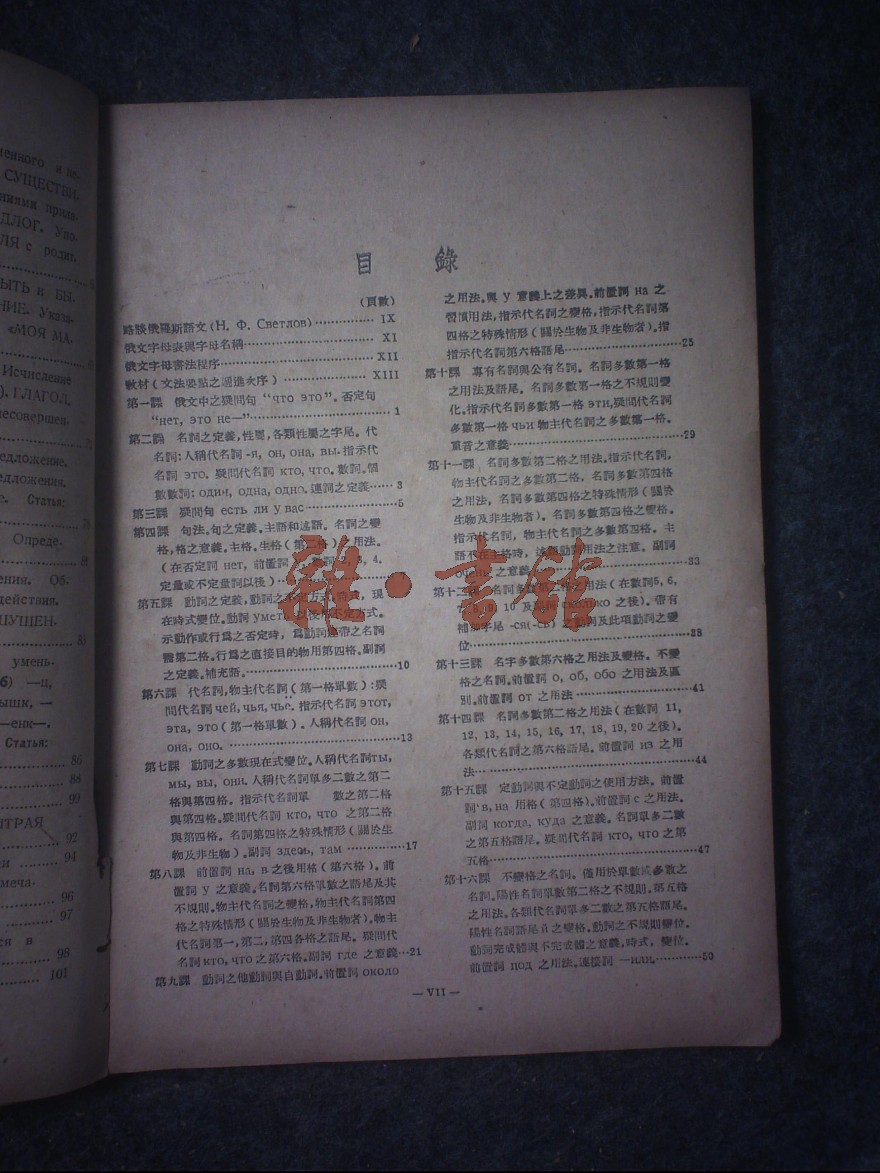 ненного и не-
СУЩЕСТВИ-
ниями прила-
ДЛОГ. Упо-
ЛЯ с родит-
ЫТЬ и БЫ-
НИЕ. Указа-
«МОЯ МА-
Исчисление
). ГЛАГОЛ.
несовершен-
едложение.
едложения.
е. Статья:
Опреде-
ения. Об-
действия.
ШУШЕН-
умень-
б) —ц,
ышк, —
—енк—.
Статья:
86
88
99
ИТРАЯ
92
ни 94
меча-
96
97
ся в
98
101
目 錄
(頁數)
略談俄羅斯語文(Н. Ф. Светлов) IX
俄文字母表與字母名稱 XI
俄文字母書法程序 XII
教材(文法要點之遞進次序) XIII
第一課 俄文中之疑問句 "что это". 否定句
"нет, это не—" 1
第二課 名詞之定義,性屬,各類性屬之字尾. 代
名詞:人稱代名詞 -я, он, она, вы. 指示代
名詞 это. 疑問代名詞 кто, что. 數詞. 個
數數詞: один, одна, одно. 連詞之定義 3
第三課 疑問句 есть ли у вас 5
第四課 句法. 句之定義. 主語和述語. 名詞之變
格, 格之意義. 主格. 生格(第二格)之用法.
(在否定詞 нет, 前置詞 4,
定量或不定量詞以後)
第五課 動詞之定義, 動詞之不定方式 現
在時式變位. 動詞 уметь 以後用不定方式.
示動作或行爲之否定時, 爲動詞連帶之名詞
需第二格. 行爲之直接目的物用第四格. 副詞
之定義. 補充語. 10
第六課 代名詞, 物主代名詞(第一格單數): 疑
問代名詞 чей, чья, чьё. 指示代名詞 этот,
эта, это (第一格單數). 人稱代名詞 он,
она, оно. 13
第七課 動詞之多數現在式變位. 人稱代名詞ты,
мы, вы, они. 人稱代名詞單多二數之第二
格與第四格. 指示代名詞單 數之第二格
與第四格. 疑問代名詞 кто, что 之第二格
與第四格. 名詞第四格之特殊情形(關於生
物及非生物). 副詞 здесь, там 17
第八課 前置詞 на, в 之後用格(第六格). 前
置詞 у 之意義. 名詞第六格單數之語尾及其
不規則. 物主代名詞之變格, 物主代名詞第四
格之特殊情形(關於生物及非生物者). 物主
代名詞第一, 第二, 第四各格之語尾. 疑問代
名詞 кто, что 之第六格. 副詞 где 之意義 21
第九課 動詞之他動詞與自動詞. 前置詞 около
之用法. 與 у 意義上之差異. 前置詞 на 之
習慣用法, 指示代名詞之變格, 指示代名詞第
四格之特殊情形(關於生物及非生物者). 指
指示代名詞第六格語尾 25
第十課 專有名詞與公有名詞. 名詞多數第一格
之用法及語尾. 名詞多數第一格之不規則變
化. 指示代名詞多數第一格 эти, 疑問代名詞
多數第一格 чьи 物主代名詞之多數第一格.
重音之意義 29
第十一課 名詞多數第二格之用法. 指示代名詞,
物主代名詞之多數第二格, 名詞多數第四格
之用法, 名詞多數第四格之特殊情形(關於
生物及非生物者). 名詞多數第四格之變格.
指示代名詞, 物主代名詞之多數第四格. 主
語不在主格時, 述語動詞用法之注意. 副詞
очень 之意義 33
第十二課 名詞多數第二格之用法(在數詞5, 6,
10 及副詞 сколько 之後). 帶有
補加字尾 -ся(-сь) 之動詞及此項動詞之變
位 38
第十三課 名字多數第六格之用法及變格. 不變
格之名詞. 前置詞 о, об, обо 之用法及區
別. 前置詞 от 之用法 41
第十四課 名詞多數第二格之用法(在數詞 11,
12, 13, 14, 15, 16, 17, 18, 19, 20 之後).
各類代名詞之第六格語尾. 前置詞 из 之用
法 44
第十五課 定動詞與不定動詞之使用方法. 前置
詞 в, на 用格(第四格). 前置詞 с 之用法.
副詞 когда, куда 之意義. 名詞單多二數
之第五格語尾. 疑問代名詞 кто, что 之第
五格 47
第十六課 不變格之名詞. 僅用於單數或多數之
名詞. 陽性名詞單數第二格之不規則. 第五格
之用法. 各類代名詞單多二數之第五格語尾.
陽性名詞語尾 й 之變格. 動詞之不規則變位.
動詞完成體與不完成體之意義, 時式, 變位.
前置詞 под 之用法. 連接詞 —или. 50
— VII —
雜·書館